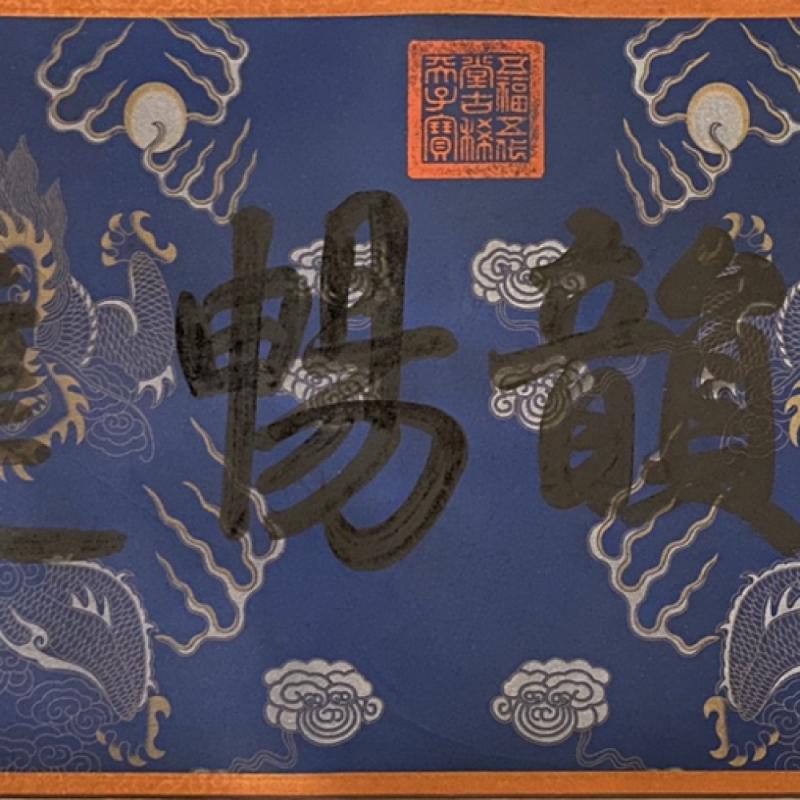 五福五代
堂古稀
天子寶
韻暢